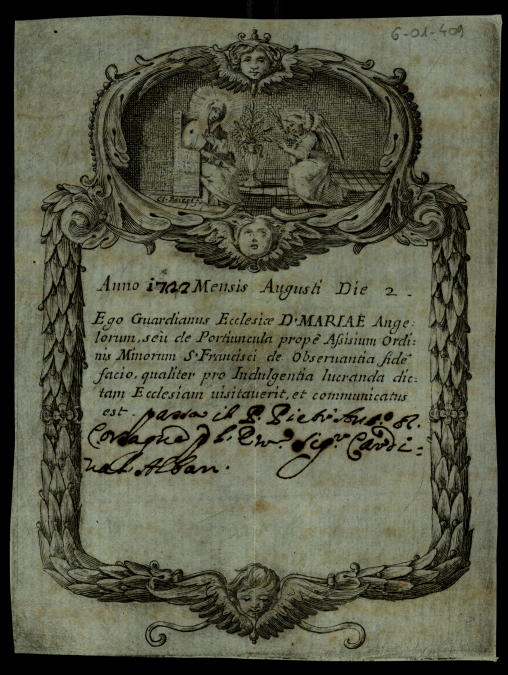 6-01-409
Anno 1727 Mensis Augusti Die 2.
Ego Guardianus Ecclesiæ D. MARIAE Ange-
lorum, seù de Portiuncula propè Assisium Ordi-
nis Minorum S. Francisci de Observantia fidẽ
facio, qualiter pro Indulgentia lucranda dic-
tam Ecclesiam visitaverit, et communicatus
est. il P. Pietr'
Sigr. Cardi-
nale Alban.